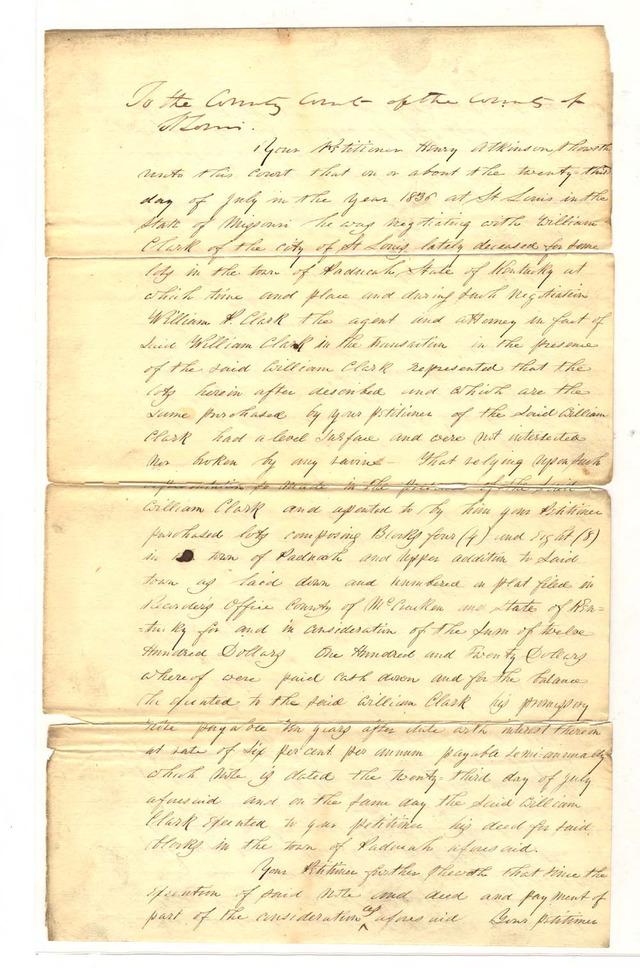 To the County Court of the County of
St Louis.
Your Petitioner Henry Atkinson, showeth
unto this court that on or about the twenty-third
day of July in the year 1836 at St Louis in the
State of Missouri he was negotiating with William
Clark of the city of St Louis, lately deceased for some
lots in the town of Paducah, State of Kentucky at
which time and place and during such negotiation
William P. Clark the agent and attorney in fact of
said William Clark in the transaction in the presence
of the said William Clark represented that the
lots herein after described and which are the
same purchased by your petitioner of the said William
Clark had a level surface and were not intersected
nor broken by any ravine - That relying upon such
representation so made in the presence of the said
William Clark and assented to by him your Petitioner
purchased lots composing Blocks four (4) and Eight (8)
in town of Paducah and upper addition to said
town as laid down and numbered on plat filed in
Recorders Office County of McCracken and State of Ken=
=tucky for and in consideration of the sum of Twelve
Hundred Dollars One Hundred and Twenty Dollars
whereof were paid cash down and for the balance
he executed to the said William Clark his promissory
note payable ten years after date with interest thereon
at rate of six per cent per annum payable semi-annually
which note is dated the twenty-third day of July
aforesaid and on the same day the said William
Clark executed to your petitioner his deed for said
blocks in the town of Paducah aforesaid.
Your Petitioner further sheweth that since the
execution of said note and deed and payment of
part of the consideration as aforesaid Your petitioner